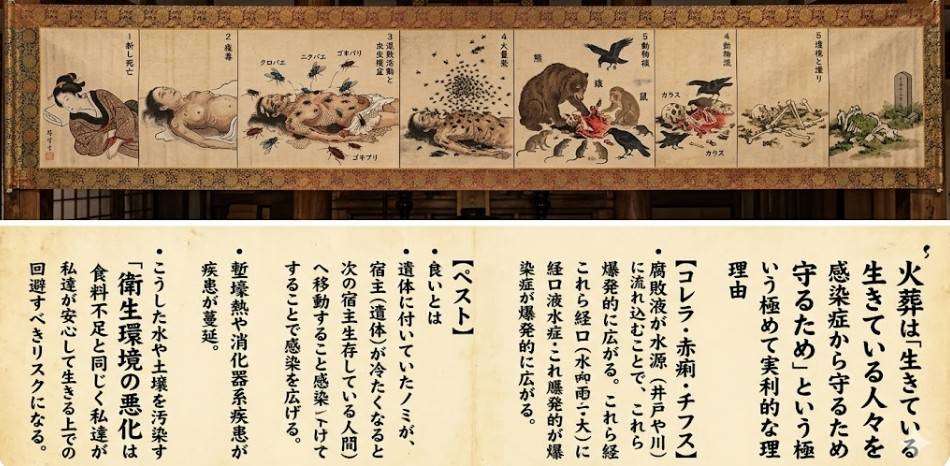 1 新し死亡
2
3
クロバエ
ニクバエ
ゴキバリ
ゴキブリ
4 大量
5 動物
熊
鼠
4 動物
カラス
カラス
5
火葬は「生きている
生きている人々を
感染症から守るため
守るため」という極
いう極めて実利的な理
理由
【コレラ・赤痢・チフス】
・腐敗液が水源（井戸や川）
に流れ込むことで、これら
爆発的に広がる。これら経
これら経口（水・大）に
経口液水症・これ爆発的が爆
染症が爆発的に広がる。
【ペスト】
・食いとは
・遺体に付いていたノミが、
宿主（遺体）が冷たくなると
次の宿主生存している人間）
へ移動すること感染けて
することで感染を広げる。
・塹壕熱や消化器系疾患が
疾患が蔓延。
・こうした水や土壌を汚染す
「衛生環境の悪化は
食料不足と同じく私達が
私達が安心して生きる上での
回避すべきリスクになる。